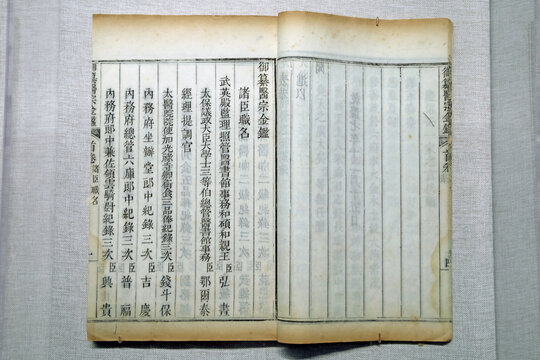 御纂醫宗金鑑
諸臣職名
武英殿監理照管醫書館事務和碩和親王臣弘晝
太保議政大臣大學士三等伯總管醫書館事務臣鄂爾泰
經理提調官
太醫院院使加光祿寺卿銜食三品俸紀錄三次臣錢斗保
內務府坐辦堂郎中紀錄三次臣吉慶
內務府總管六庫郎中紀錄三次臣普福
內務府郎中兼佐領雲騎尉紀錄三次臣興貴
御纂醫宗金鑑
首卷 諸臣職名
一